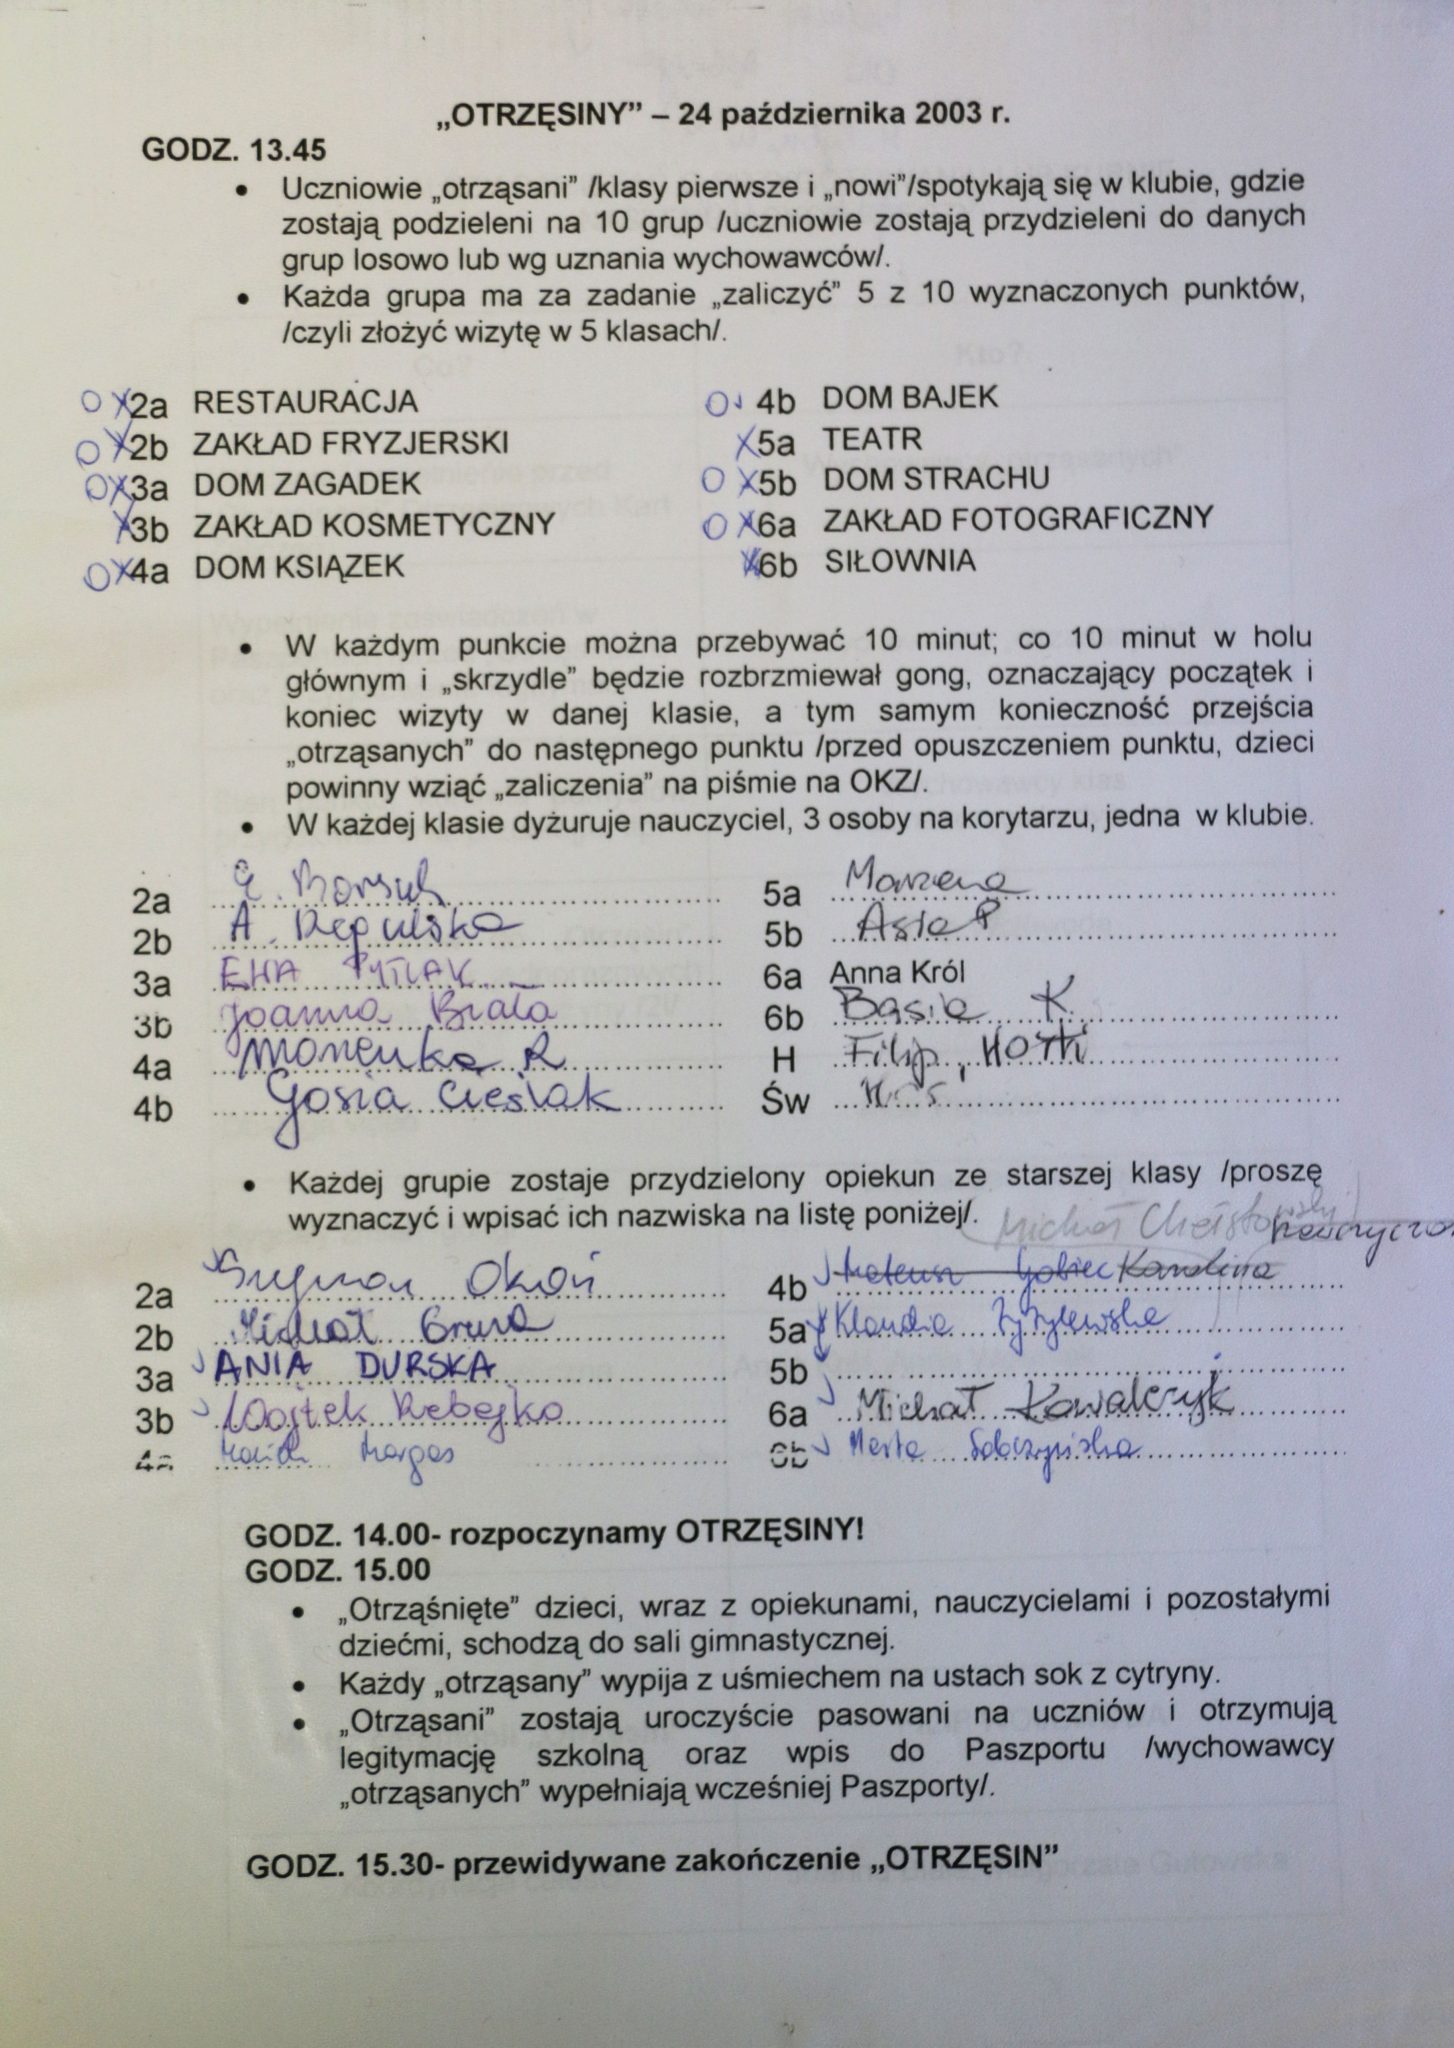 „OTRZĘSINY” – 24 października 2003 r.
GODZ. 13.45
• Uczniowie „otrząsani” /klasy pierwsze i „nowi”/spotykają się w klubie, gdzie
zostają podzieleni na 10 grup /uczniowie zostają przydzieleni do danych
grup losowo lub wg uznania wychowawców/.
• Każda grupa ma za zadanie „zaliczyć” 5 z 10 wyznaczonych punktów,
/czyli złożyć wizytę w 5 klasach/.
2a RESTAURACJA
2b ZAKŁAD FRYZJERSKI
3a DOM ZAGADEK
3b ZAKŁAD KOSMETYCZNY
4a DOM KSIĄZEK
4b DOM BAJEK
5a TEATR
5b DOM STRACHU
6a ZAKŁAD FOTOGRAFICZNY
6b SIŁOWNIA
• W każdym punkcie można przebywać 10 minut; co 10 minut w holu
głównym i „skrzydle” będzie rozbrzmiewał gong, oznaczający początek i
koniec wizyty w danej klasie, a tym samym konieczność przejścia
„otrząsanych” do następnego punktu /przed opuszczeniem punktu, dzieci
powinny wziąć „zaliczenia” na piśmie na OKZ/.
• W każdej klasie dyżuruje nauczyciel, 3 osoby na korytarzu, jedna w klubie.
2a Borsuk
2b A. Regulska
3a
3b Joanna Biała
4a R
4b Gosia Cieślak
5a Marzena
5b Asia P
6a Anna Król
6b Basia K
H Filip,
Św
• Każdej grupie zostaje przydzielony opiekun ze starszej klasy /proszę
wyznaczyć i wpisać ich nazwiska na listę poniżej/.
Michał
2a Szymon Okoń
2b Michał
3a ANIA DURSKA
3b Wojtek Rebejko
4a
4b Mateusz Karolina
5a Klaudia
5b
6a Michał Kowalczyk
6b Marta
GODZ. 14.00- rozpoczynamy OTRZĘSINY!
GODZ. 15.00
• „Otrząśnięte” dzieci, wraz z opiekunami, nauczycielami i pozostałymi
dziećmi, schodzą do sali gimnastycznej.
• Każdy „otrząsany” wypija z uśmiechem na ustach sok z cytryny.
• „Otrząsani” zostają uroczyście pasowani na uczniów i otrzymują
legitymację szkolną oraz wpis do Paszportu /wychowawcy
„otrząsanych” wypełniają wcześniej Paszporty/.
GODZ. 15.30- przewidywane zakończenie „OTRZĘSIN”